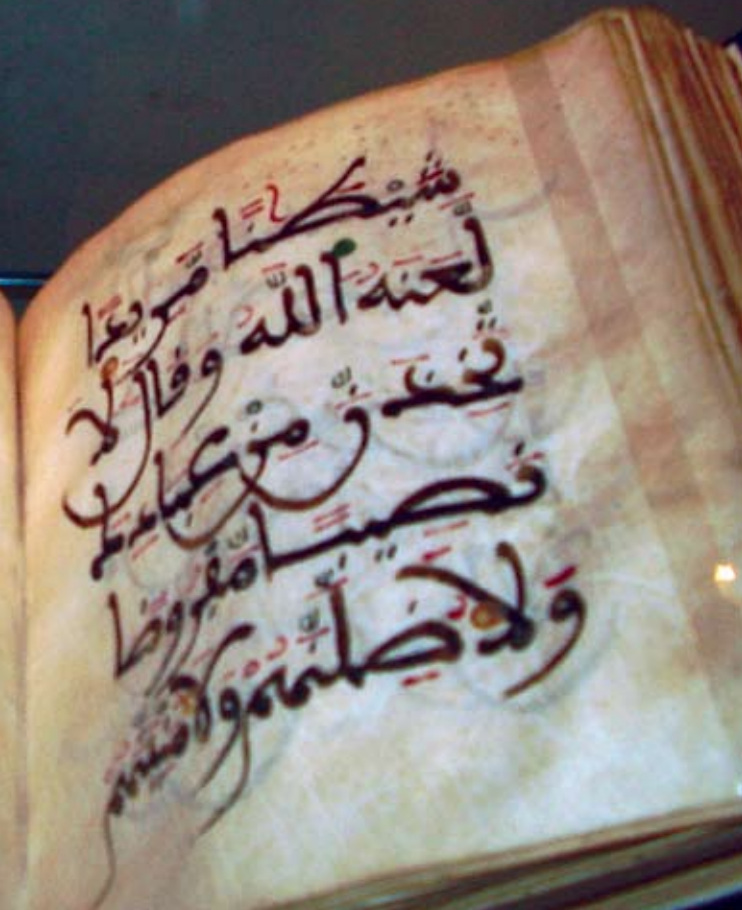 شَيْطَٰنًا مَّرِيدًا
لَّعَنَهُ اللَّهُ وَقَالَ لَأ
تَّخِذَنَّ مِنْ عِبَادِكَ
نَصِيبًا مَّفْرُوضًا
وَلَأُضِلَّنَّهُمْ وَلَأُمَنِّيَنَّهُمْ